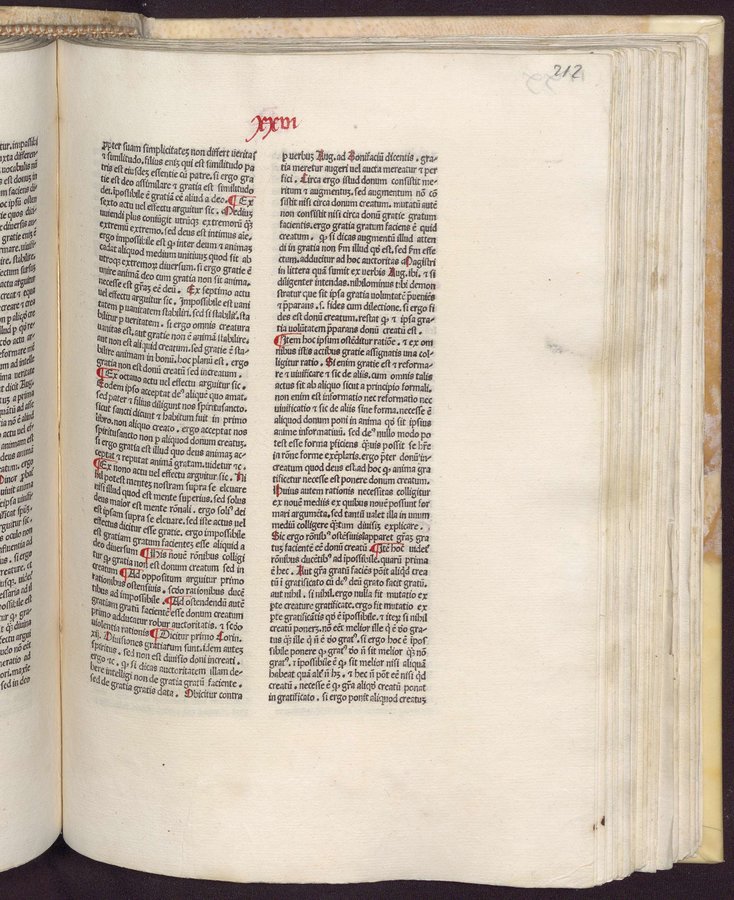 212
xxvi
ꝓpter suam simplicitatez non differt veritas
⁊ similitudo. filius eniz qui est similitudo pa
tris est eiusdez essentie cū patre. si ergo gra
tie est deo assimilare ⁊ gratia est similitudo
dei. īpossibile ē gratiā eē aliud a deo. ¶ Ex
sexto actu vel effectu arguitur sic. Mediuz
uniendi plus coniūgit utrūqꝫ extremorū ꝙ
extremū extremo. sed deus est intimus aīe.
ergo impossibile est ꝙ inter deum ⁊ animaz
cadat aliquod medium unitiuuꝫ quod sit ab
utroqꝫ extremoꝝ diuersum. si ergo gratie ē
unire animā deo cum gratia non sit anima.
necesse est grāꝫ eē deū. Ex septimo actu
vel effectu arguitur sic. Impossibile est vani
tatem ꝑ vanitatem stabiliri. sed si stabilit̄. sta
bilitur ꝑ veritatem. si ergo omnis creatura
vanitas est. aut gratie non ē animā stabilire.
aut non est aliquid creatum. sed gratie ē sta
bilire animam in bonū. hoc planū est. ergo
gratia non est donū creatū sed increatum.
¶ Ex octauo actu vel effectu arguitur sic.
Eodem ipso acceptat deꝰ aliquē quo amat.
sed pater ⁊ filius diligunt nos spiritusancto.
sicut sancti dicunt ⁊ habitum fuit in primo
libro. non aliquo creato. ergo acceptat nos
spiritusancto non ꝑ aliquod donum creatuꝫ.
si ergo gratia est illud quo deus animaz ac
ceptat ⁊ reputat animā gratam. uidetur ⁊c.
¶ Ex nono actu vel effectu arguitur sic. Ni
hil potest mentez nostram supra se eleuare
nisi illud quod est mente superius. sed solus
deus maior est mente rōnali. ergo solꝰ dei
est ipsam supra se eleuare. sed iste actus vel
effectus dicitur esse gratie. ergo impossibile
est gratiam gratum facientez esse aliquid a
deo diuersum ¶ His nouē rōnibus colligi
tur ꝙ gratia non est donum creatum sed in
creatum ¶ Ad oppositum arguitur primo
rationibus ostensiuis. scdo rationibus ducē
tibus ad impossibile. ¶ Ad ostendendū autē
gratiam gratū faciente esse donum creatum
primo adducatur robur auctoritatis. ⁊ scdo
violentia rationis ¶ Dicitur primo Corin.
xij. Diuisiones gratiarum sunt. idem autez
spiritus. sed non est diuisio doni increati.
ergo ⁊c. ꝙ si dicas auctoritatem illam de-
bere intelligi non de gratia gratū faciente.
sed de gratia gratis data. Obicitur contra
ꝑ uerbuꝫ Aug. ad Bonifaciū dicentis. gra-
tia meretur augeri vel aucta mereatur ⁊ per
fici. Circa ergo istud donum consistit me-
ritum ⁊ augmentuz. sed augmentum nō cō
sistit nisi circa donum creatum. mutatū autē
non consistit nisi circa donū gratie gratum
facientis. ergo gratia gratum faciens ē quid
creatum. ꝙ si dicas augmentū illud atten
di in gratia non ẜm illud qd̄ est. sed ẜm effe
ctum. adducitur ad hoc auctoritas Magistri
in littera quā sumit ex verbis Aug. ibi. ⁊ si
diligenter intendas. nihilominus tibi demon
stratur que sit ipsa gratia voluntatē ꝓueniēs
⁊ p̄parans. s. fides cum dilectione. si ergo fi
des est donū creatum. restat ꝙ ⁊ ipsa gra-
tia volūtatem p̄parans donū creatū est.
¶ Item hoc ipsum ostēditur ratiōe. ⁊ ex om
nibus istis actibus gratie assignatis una col-
ligitur ratio. Si enim gratie est ⁊ reforma-
re ⁊ uiuificare ⁊ sic de aliis. cum omnis talis
actus sit ab aliquo sicut a principio formali.
non enim est informatio nec reformatio nec
uiuificatio ⁊ sic de aliis sine forma. necesse ē
aliquod donum poni in anima qd̄ sit ipsius
anime informatiuū. sed deꝰ nullo modo po
test esse forma ꝑficiens ꝗ̄uis possit se hr̄e
in rōne forme exēplaris. ergo p̄ter donū in-
creatum quod deus est. ad hoc ꝙ anima gra
tificetur necesse est ponere donum creatum.
Huius autem rationis necessitas colligitur
ex nouē mediis ex quibus nouē possunt for
mari argumēta. sed tantū valet illa in unum
mediū colligere ꝗ̄tum diuisiꝫ explicare.
Sic ergo rōnibꝰ ostēsiuis apparet grāꝫ gra
tuꝫ faciente eē donū creatū ¶ Ite hoc uideſ
rōnibus ducētibꝰ ad īpossibile. quarū prima
ē hec. Aut grā gratū faciēs ponit aliqd̄ crea
tū ī gratificato cū dr̄ deū grato facit gratū.
aut nihil. si nihil. ergo nulla fit mutatio ex
pte creature gratificate. ergo fit mutatio ex
pte gratificātis qd̄ ē īpossibile. ⁊ iteꝝ si nihil
creatū ponerꝫ. nō eēt melior ille ꝗ ē vō gra-
tus ꝗ̄ ille ꝗ nō ē vō gratꝰ. si ergo hoc ē īpos
sibile ponere ꝙ gratꝰ vō nō sit melior ꝗ̄ nō
gratꝰ. ⁊ īpossibile ē ꝙ sit melior nisi aliquā
habeat quā ale nō hꝫ. ⁊ hec nō pōt eē nisi qd̄
creatū. necesse ē ꝙ grā aliqd̄ creatū ponat
in gratificato. si ergo ponit aliquod creatuꝫ